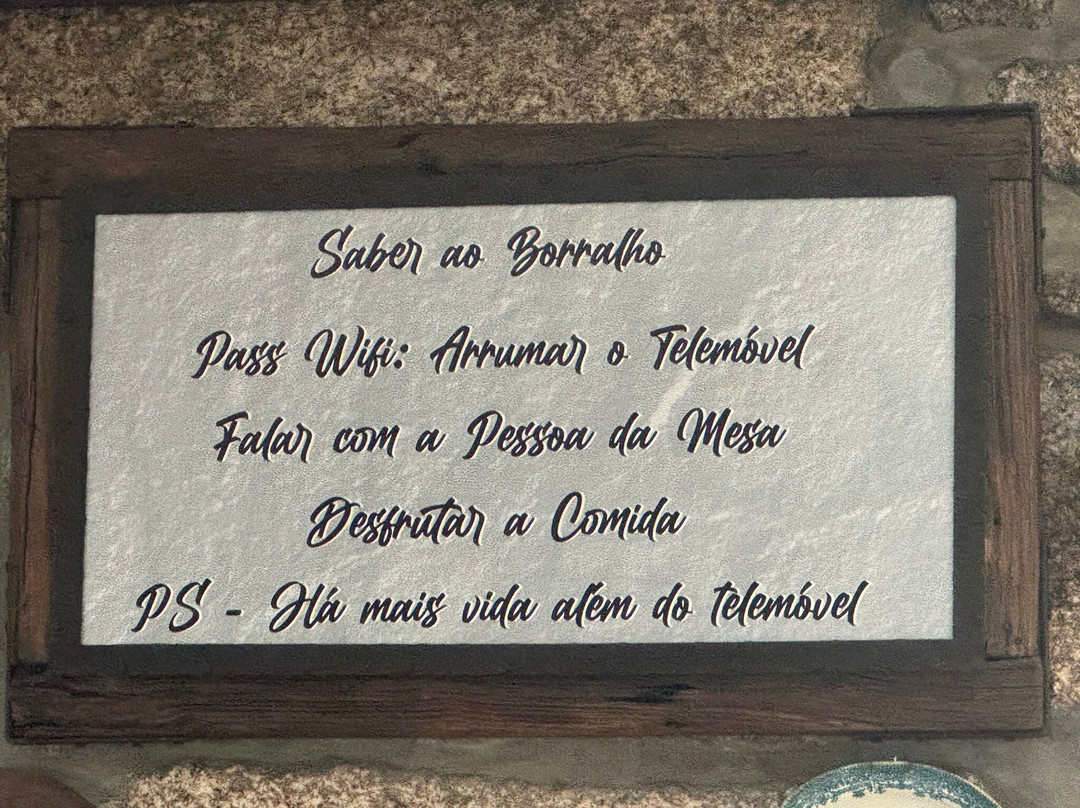 Saber ao Borralho
Pass Wifi: Arrumar o Telemóvel
Falar com a Pessoa da Mesa
Desfrutar a Comida
PS - Há mais vida além do telemóvel